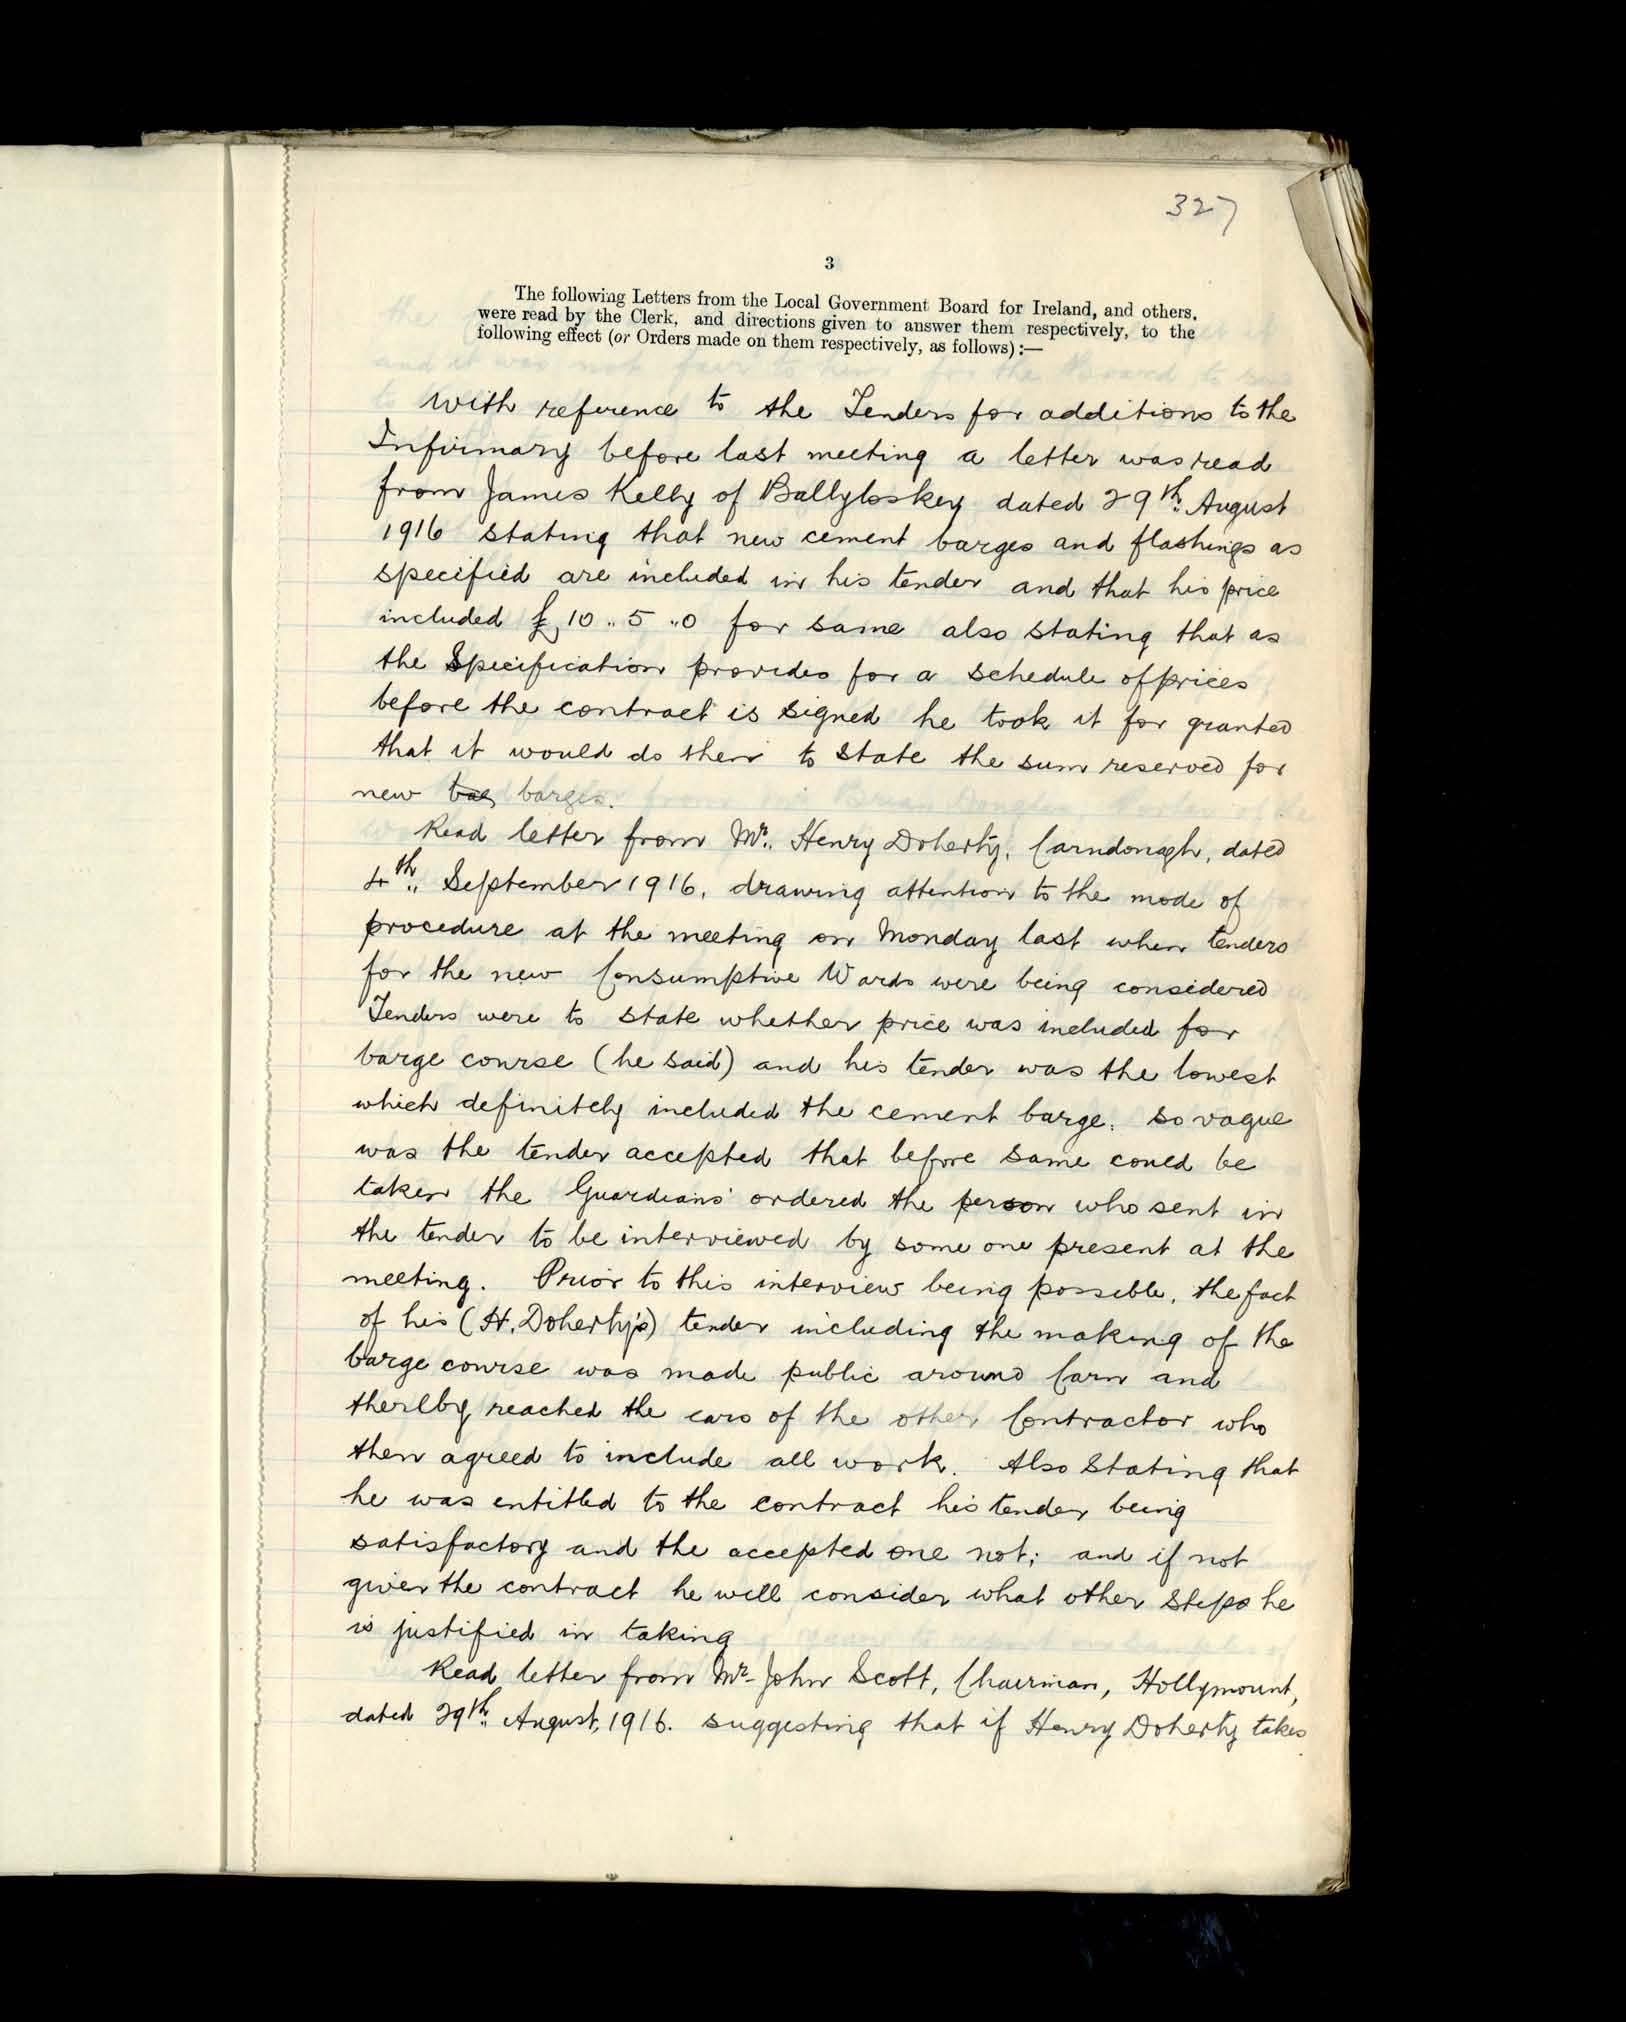 327
3
The following Letters from the Local Government Board for Ireland, and others,
were read by the Clerk, and directions given to answer them respectively, to the
following effect (or Orders made on them respectively, as follows):—
With reference to the Tenders for additions to the
Infirmary before last meeting a letter was read
from James Kelly of Ballyloskey dated 29th. August
1916 stating that new cement barges and flashings as
specified are included in his tender and that his price
included £10..5..0 for same also stating that as
the Specification provides for a schedule of prices
before the contract is signed he took it for granted
that it would do then to state the sum reserved for
new barges.
Read letter from Mr. Henry Doherty, Carndonagh, dated
4th. September 1916, drawing attention to the mode of
procedure at the meeting on Monday last when tenders
for the new Consumptive Wards were being considered
Tenders were to state whether price was included for
barge course (he said) and his tender was the lowest
which definitely included the cement barge. so vague
was the tender accepted that before same could be
taken the Guardians ordered the person who sent in
the tender to be interviewed by some one present at the
meeting. Prior to this interview being possible, the fact
of his (H. Doherty's) tender including the making of the
barge course was made public around Carn and
thereby reached the ears of the other Contractor who
then agreed to include all work. Also stating that
he was entitled to the contract his tender being
satisfactory and the accepted one not; and if not
given the contract he will consider what other steps he
is justified in taking
Read letter from Mr. John Scott, Chairman, Hollymount,
dated 29th. August, 1916. suggesting that if Henry Doherty takes